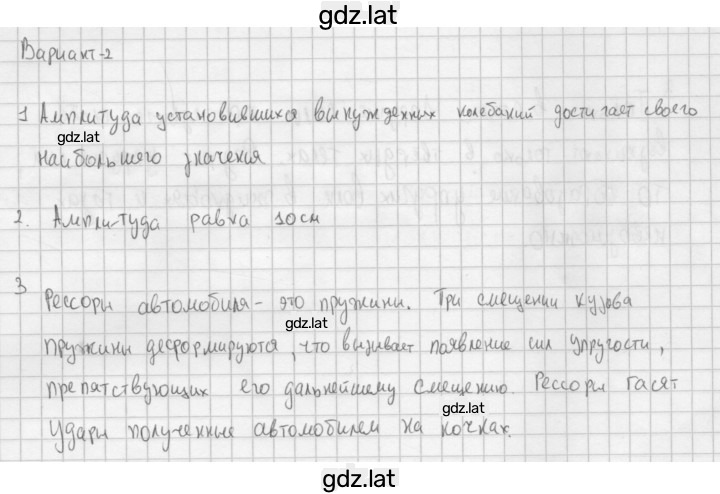 gdz.lat
Вариант-2
1 Амплитуда установившихся вынужденных колебаний достигает своего
gdz.lat
наибольшего значения
2. Амплитуда равна 10см
3 Рессоры автомобиля - это пружины. При смещении кузова
gdz.lat
пружины деформируются, что вызывает появление сил упругости,
препятствующих его дальнейшему смещению. Рессоры гасят
gdz.lat
удары полученные автомобилем на кочках.
gdz.lat